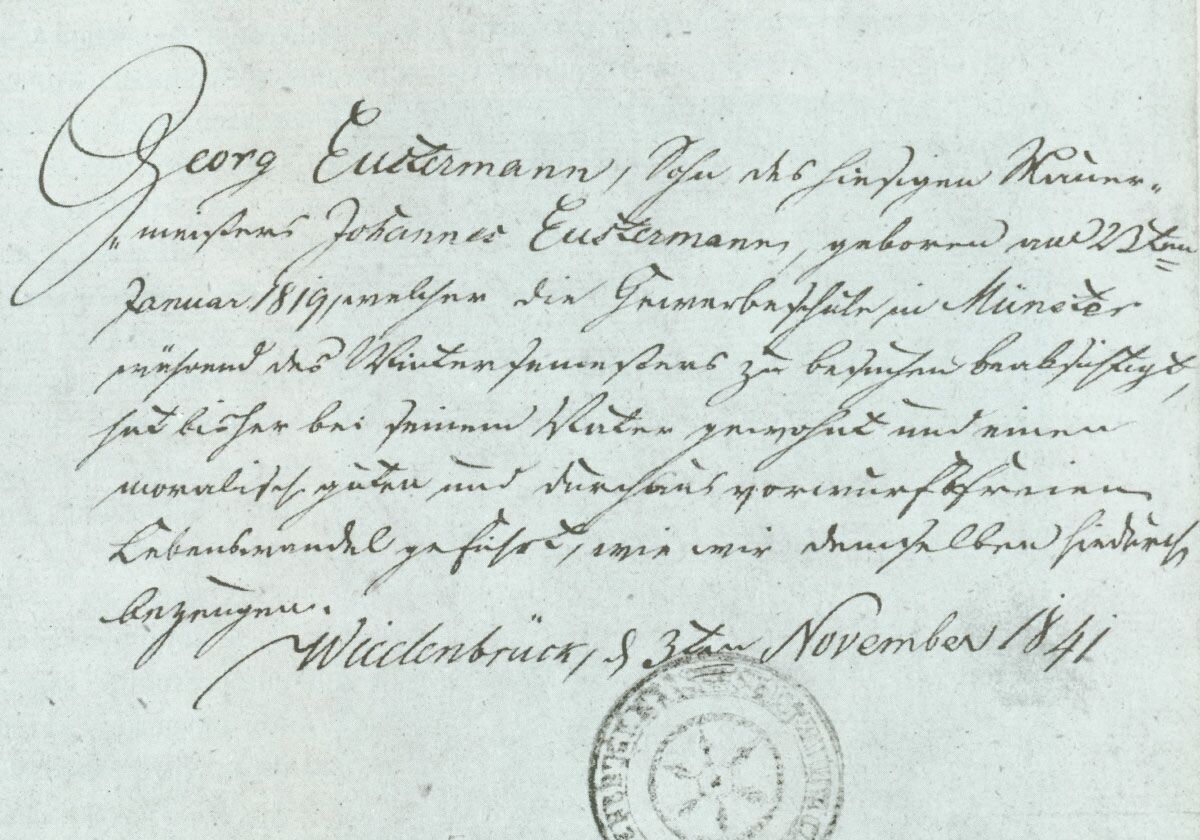 Georg Eustermann, Sohn des hiesigen Mauer-
meisters Johannes Eustermann, geboren am 23ten
Januar 1819, welcher die Gewerbeschule in Münster
während des Wintersemesters zu besuchen beabsichtigt,
hat bisher bei seinem Vater gewohnt und einen
moralisch guten und durchaus vorwurfsfreien
Lebenswandel geführt, wie wir demselben hiedurch
bezeugen.
Wiedenbrück, d 3ten November 1841